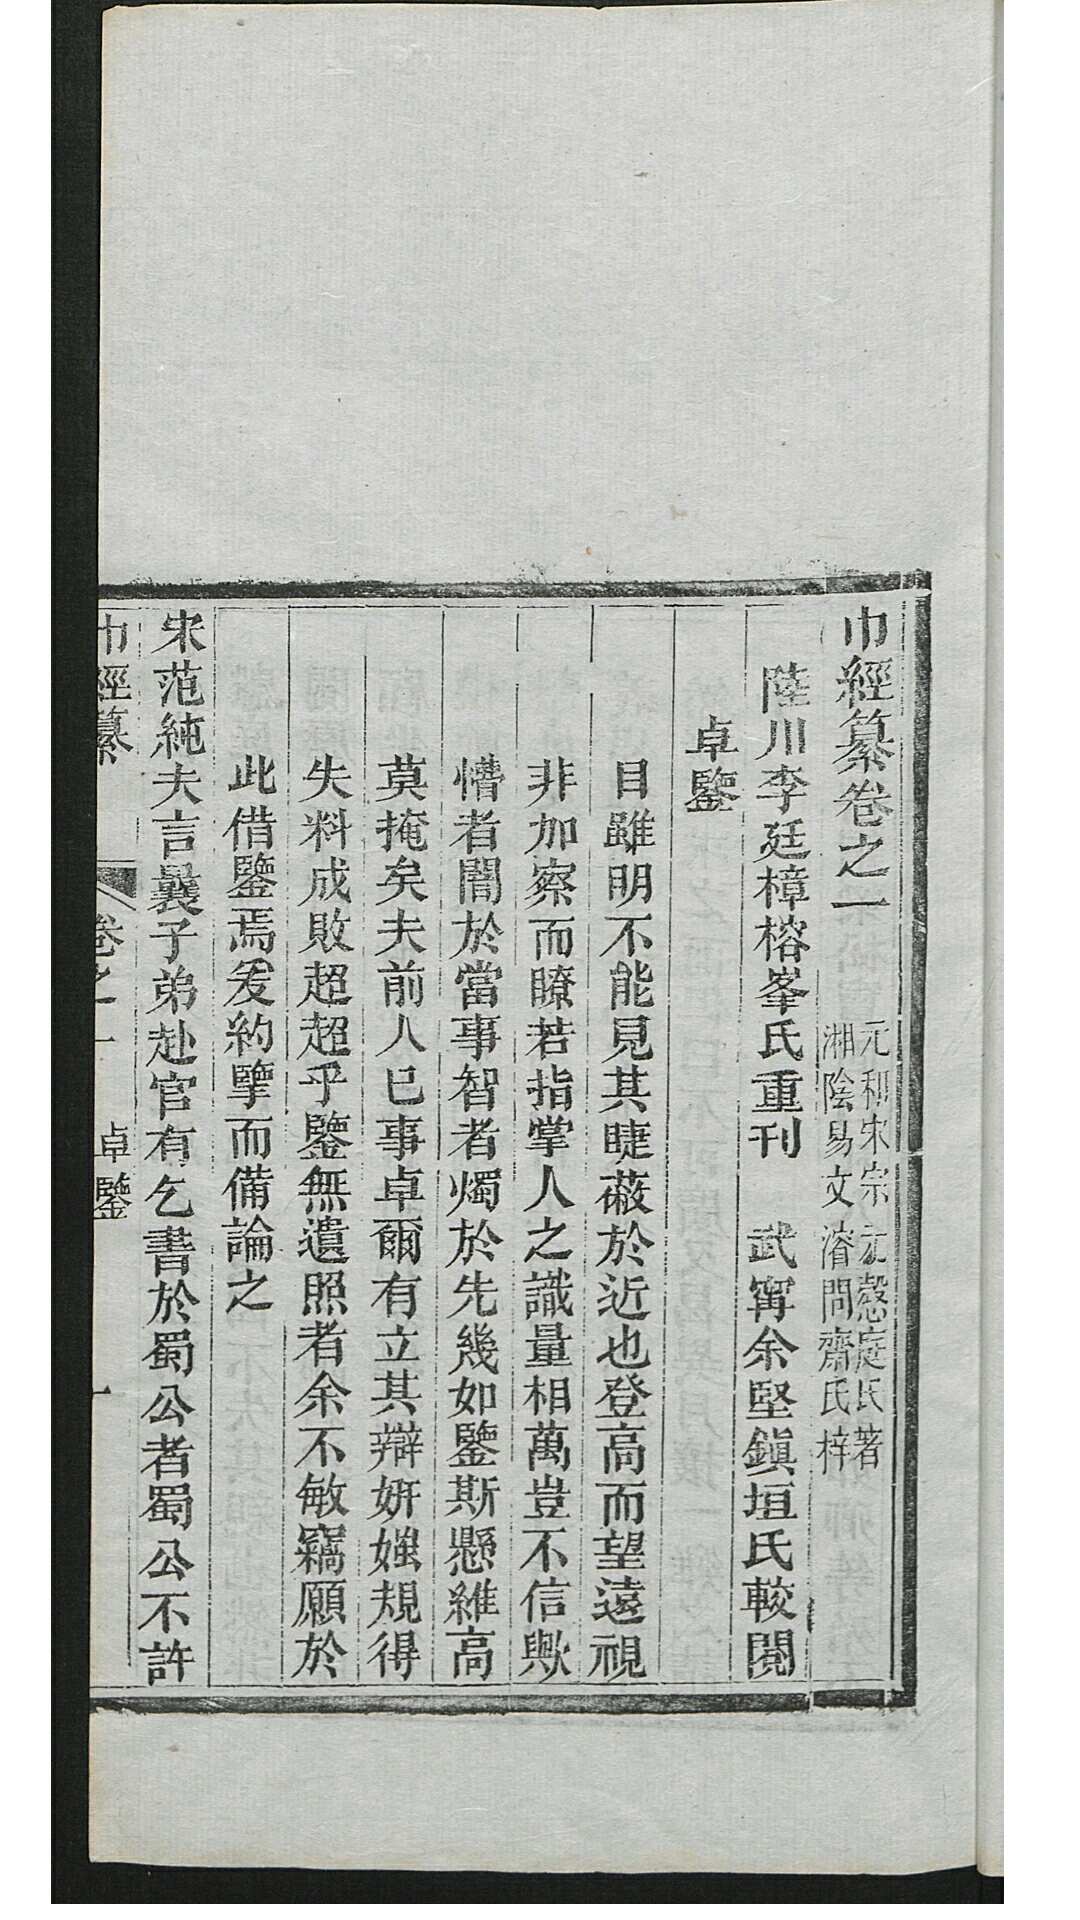 巾經纂卷之一
元和宋宗元愨庭氏著
湘陰易文濬問齋氏梓
陸川李廷樟榕峯氏重刊 武甯余堅鎮垣氏較閱
卓鑒
目雖明不能見其睫蔽於近也登高而望遠視
非加察而瞭若指掌人之識量相萬豈不信歟
懵者闇於當事智者燭於先幾如鑒斯懸維高
莫掩矣夫前人已事卓爾有立其辯妍媸規得
失料成敗超超乎鑒無遺照者余不敏竊願於
此借鑒焉爰約擥而備論之
宋范純夫言曩子弟赴官有乞書於蜀公者蜀公不許
巾經纂 卷之一 卓鑒 一